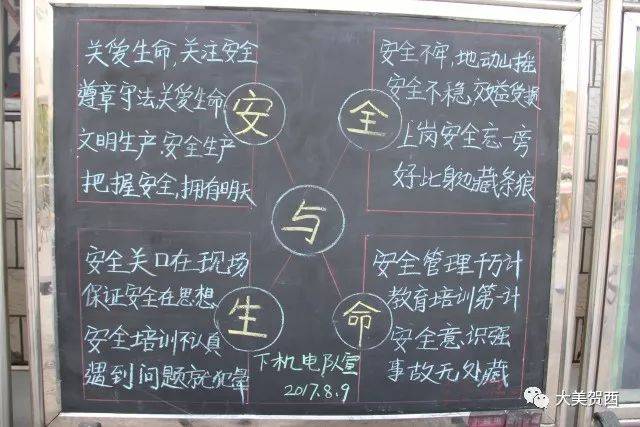 关爱生命,关注安全
遵章守法关爱生命
文明生产.安全生产
把握安全,拥有明天
安全不牢,地动山摇
安全不稳,效益受损
上岗安全忘一旁
好比身边藏条狼
安
全
与
生
命
安全关口在现场
保证安全在思想
安全培训不认真
遇到问题就犯晕
安全管理千万计
教育培训第一计
安全意识强
事故无处藏
下机电队宣
2017.8.9
大美贺西